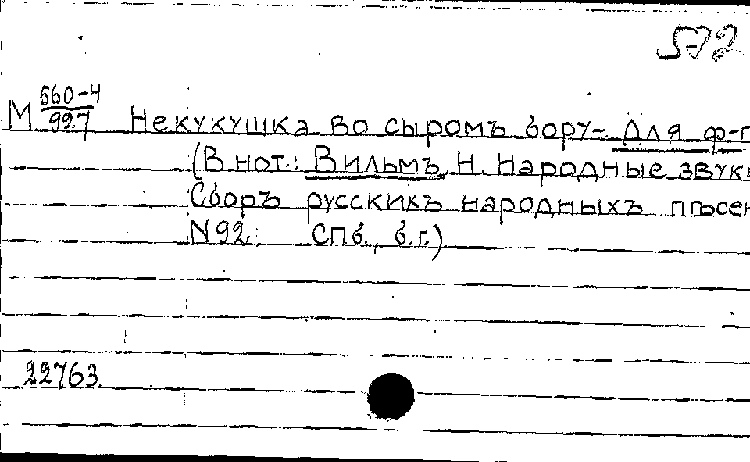 572
М 560-4/997 Некукушка во сыромъ бору- Для ф-п
(В нот.: Вильмъ, Н. Народные звуки
Сборъ русскихъ народныхъ пѣсен
N92.: СПб., б.г.)
22763.